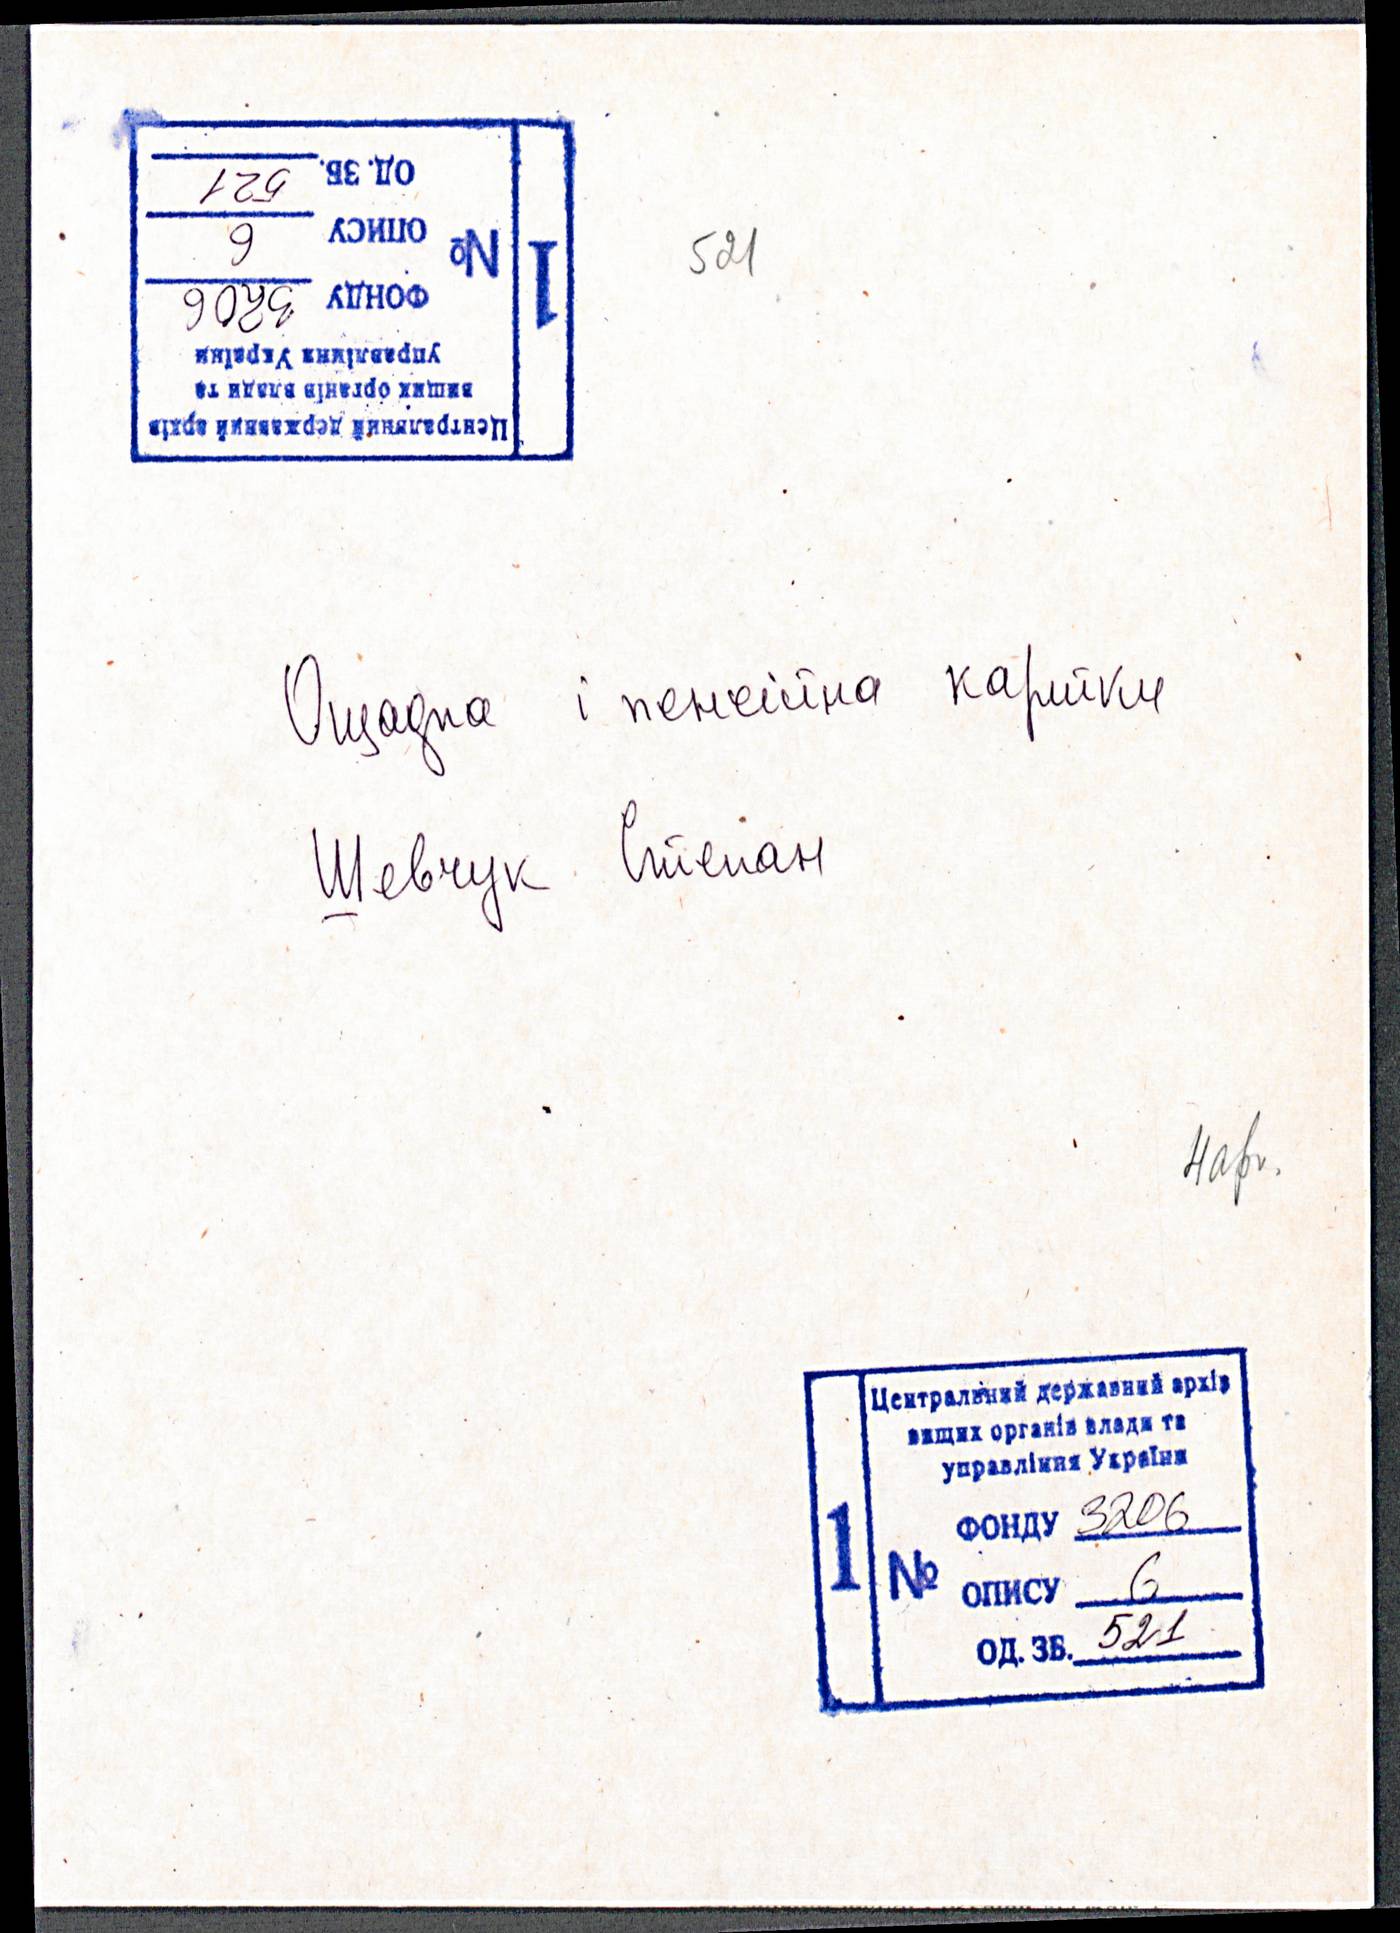 1
Центральний державний архів
вищих органів влади та
управління України
№
ФОНДУ 3206
ОПИСУ 6
ОД. ЗБ. 521
521
Ощадна і пенсійна картки
Шевчук Степан
4 арк.
1
Центральний державний архів
вищих органів влади та
управління України
№
ФОНДУ 3206
ОПИСУ 6
ОД. ЗБ. 521